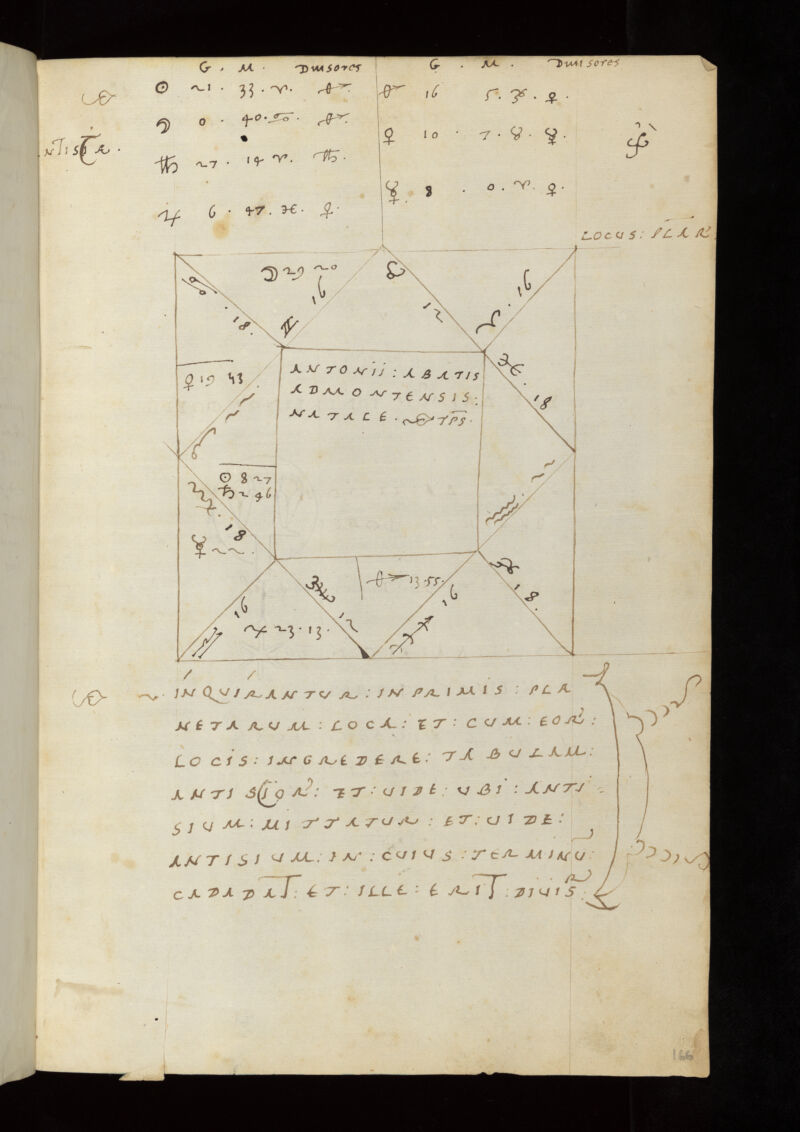 G . M . Diuisores
G . M . Diuisores
☉ 21 · 33 · ♈ ·
☽ 0 · 40 · ♋ ·
♄ 27 · 14 ♈ · ♄ ·
♃ 6 · 47 · ♓ · ♀ ·
♂ 16 5 · ♓ · ♀ ·
♀ 10 · 7 · ♉ · ☿ ·
☿ 8 · 0 · ♈ · ♀ ·
LOCUS : PLAR
☽ 29 20
♋ · 18 ·
♊ 16
♉ 12
♈ · 16
♓ · 18
♀ 19 43
♌
☉ 8 27
♄ 2 46
♍ · 18
☿ 22 ·
ANTONII : ABATIS
ADMONTENSIS :
NATALE ·
♒ ·
♎ 16
♃ 23 · 13 ·
♏ 12
♂ 13 · 55 ·
♐ 16
♑ 18 ·
INQUIRANTUR : INPRIMIS : PLA
NETARUM : LOCA : ET : CUM : EOR :
LOCIS : INGREDERE : TABULAM :
ANTISCIOR : ET : UIDE : UBI : ANTI
SIUM : MITTATUR : ET : UIDE :
ANTISIUM : IN : CUIUS : TERMINU :
CADADAT : ET : ILLE : ERIT : DIUIS :
166